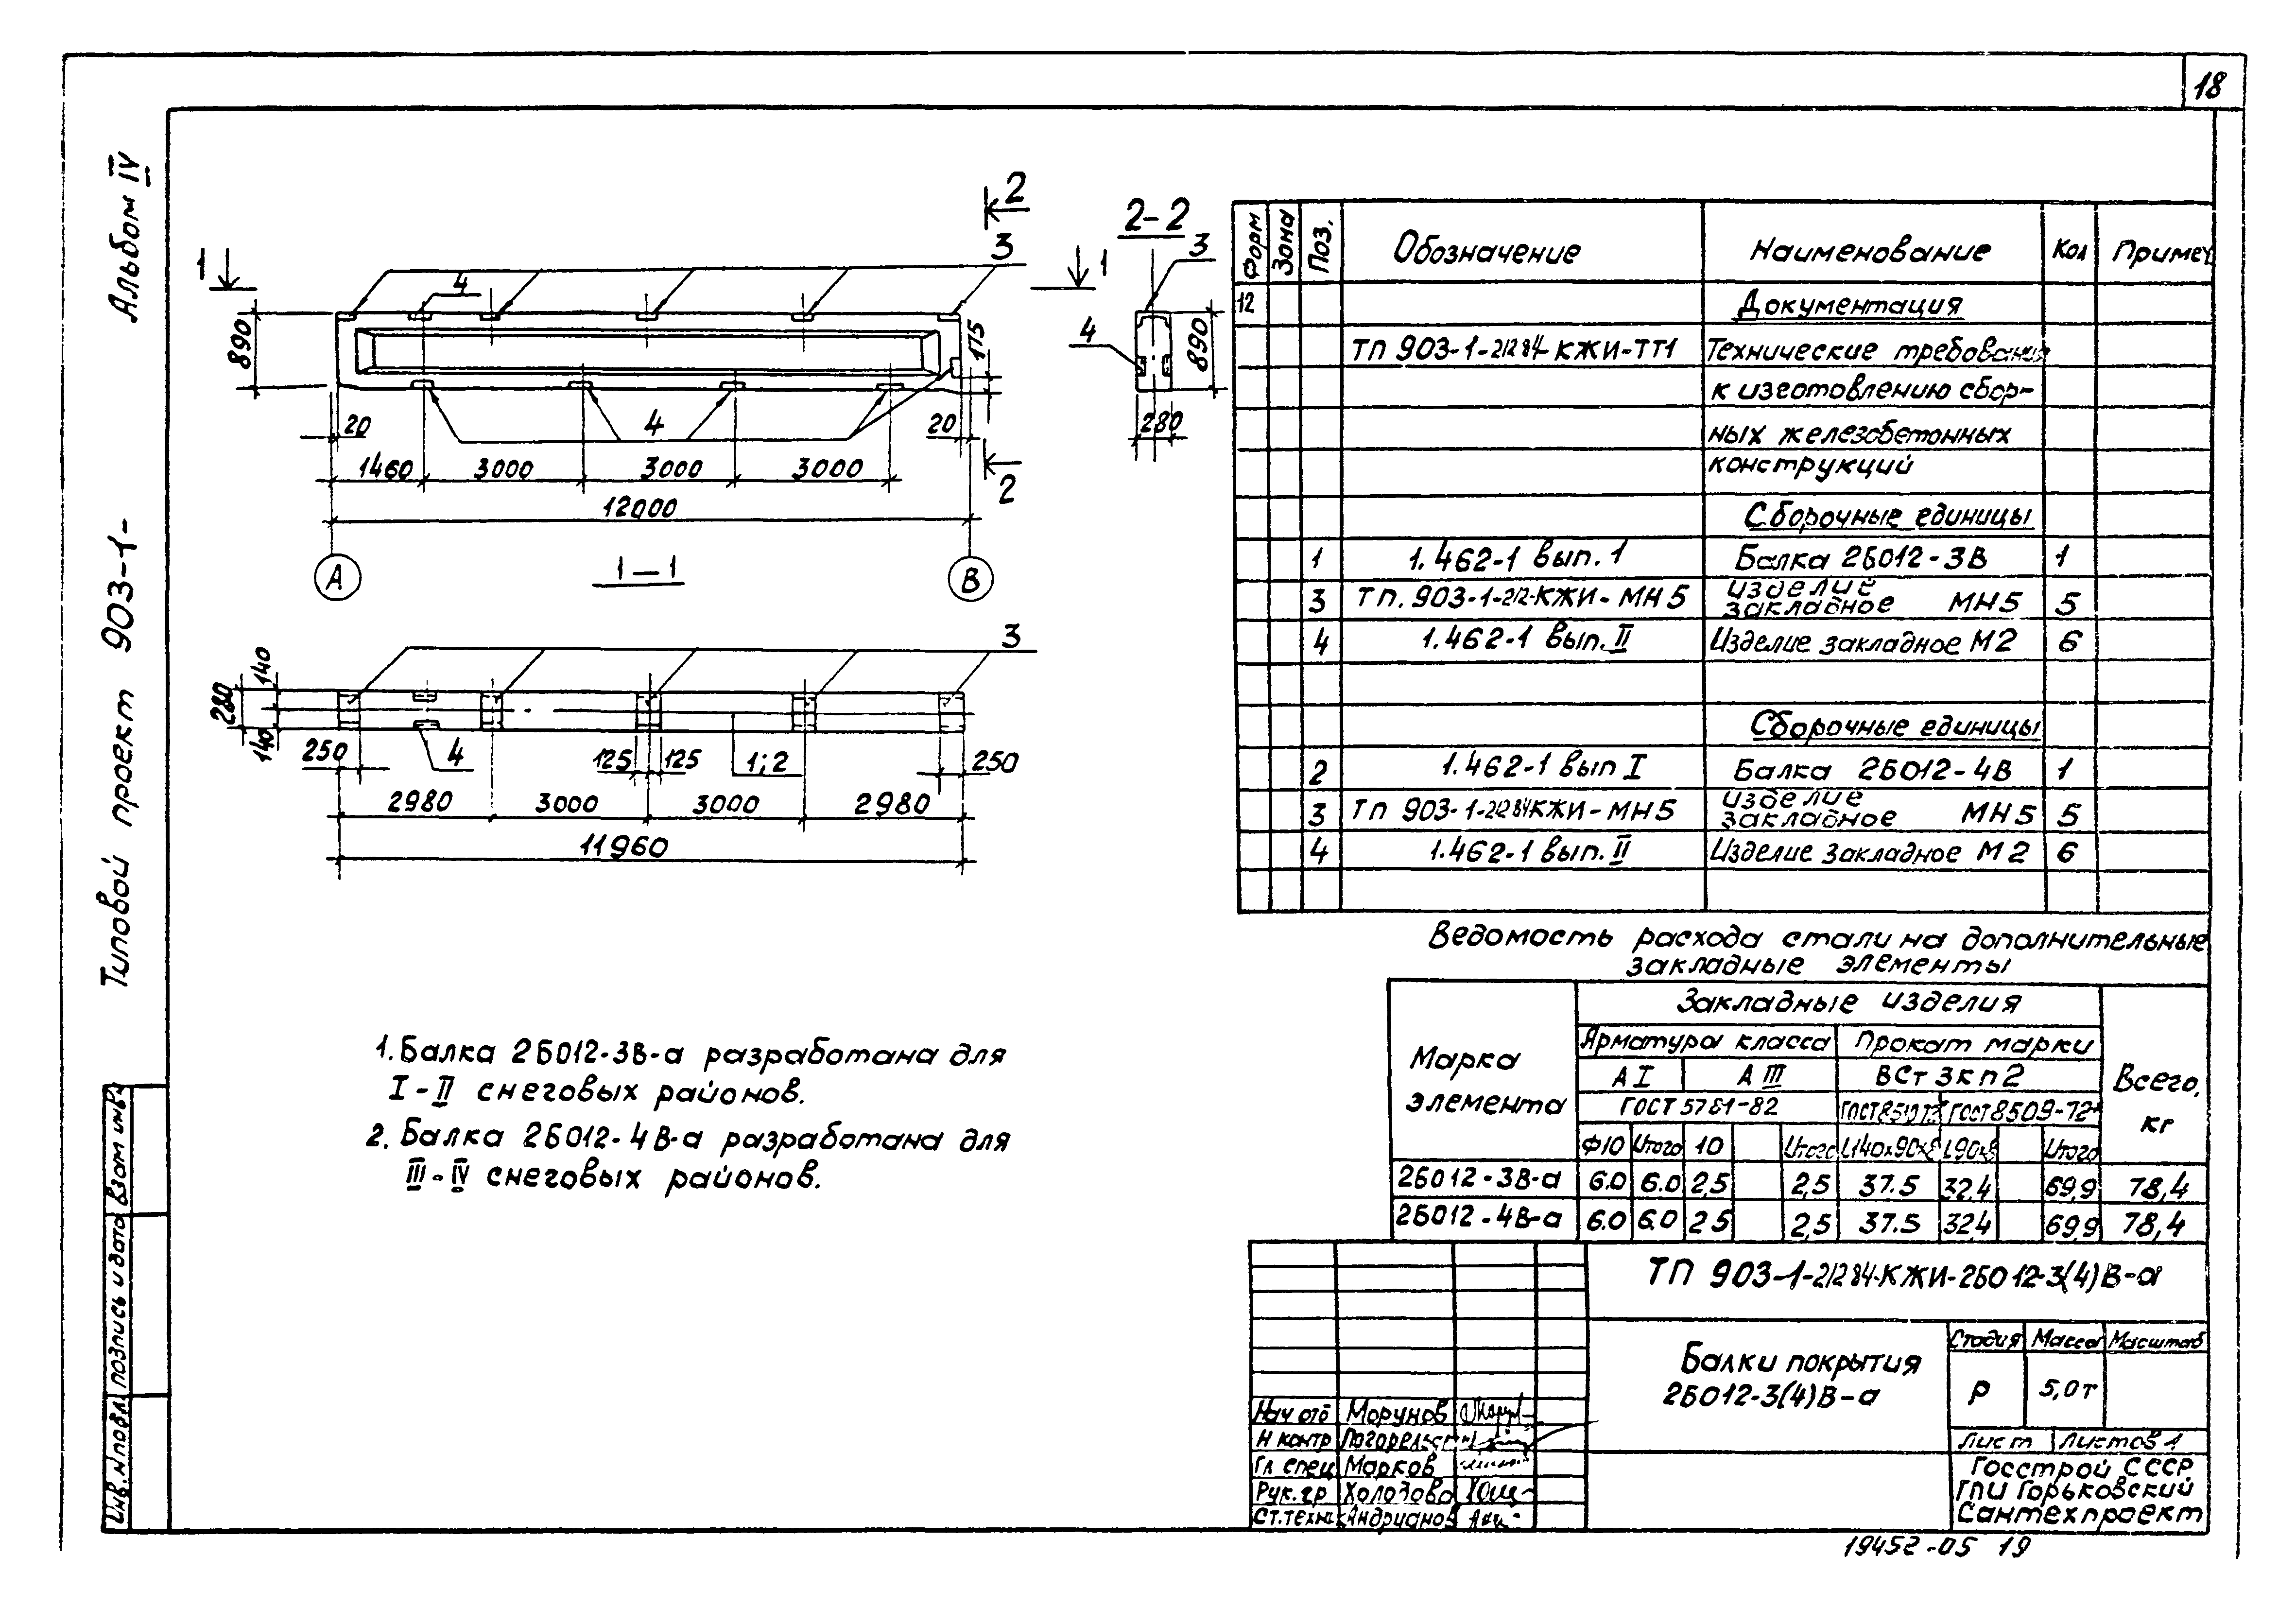 18
Альбом IV
Типовой проект 903-1-
1
2
3
1
4
890
175
20
4
20
1460 3000 3000 3000
2
12000
А
В
2-2
3
4
890
280
1-1
3
140
280
140
250
4
125 125
1;2
250
2980 3000 3000 2980
11960
1. Балка 2БО12-3В-а разработана для
I-II снеговых районов.
2. Балка 2БО12-4В-а разработана для
III-IV снеговых районов.
Форм Зона Поз. Обозначение Наименование Кол Примеч
12 Документация
ТП 903-1-212 84-КЖИ-ТТ1 Технические требования
к изготовлению сбор-
ных железобетонных
конструкций
Сборочные единицы
1 1.462-1 вып. 1 Балка 2БО12-3В 1
3 ТП. 903-1-212-КЖИ-МН5 изделие закладное МН5 5
4 1.462-1 вып. II Изделие закладное М2 6
Сборочные единицы
2 1.462-1 вып I Балка 2БО12-4В 1
3 ТП 903-1-212 84 КЖИ-МН5 изделие закладное МН5 5
4 1.462-1 вып. II Изделие закладное М2 6
Ведомость расхода стали на дополнительные
закладные элементы
Марка элемента
Закладные изделия
Всего, кг
Арматура класса Прокат марки
А I А III ВСт 3кп2
ГОСТ 5781-82 ГОСТ 8509-72
Ф10 Итого 10 Итого Итого
2БО12-3В-а 6.0 6.0 2,5 2,5 37.5 32.4 69,9 78,4
2БО12-4В-а 6.0 6.0 2.5 2,5 37.5 32.4 69,9 78,4
ТП 903-1-212 84-КЖИ-2БО12-3(4)В-а
Балки покрытия
2БО12-3(4)В-а
Стадия Масса Масштаб
Р 5,0т
Лист Листов 1
Госстрой СССР
ГПИ Горьковский
Сантехпроект
Нач отд Морунов
Н контр
Гл спец Марков
Рук. гр Холодова
Ст. техн. Андрианов
Инв. N подл. подпись и дата Взам инв.
19452-05 19